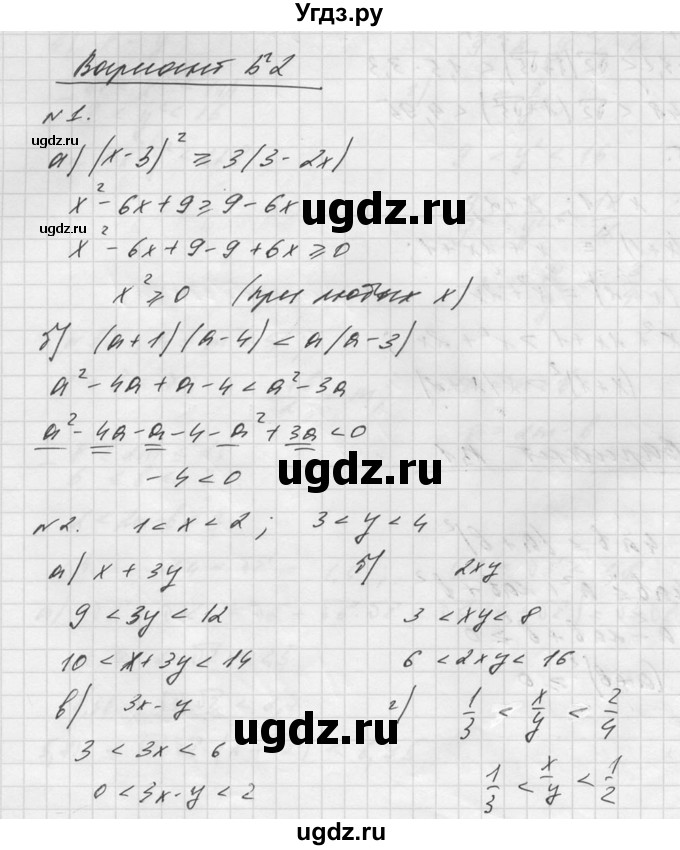 Угдз.ру
Вариант Б2
№1.
а) (x-3)² ≥ 3(3-2x)
ugdz.ru
x² - 6x + 9 ≥ 9 - 6x
ugdz.ru
ugdz.ru
x² - 6x + 9 - 9 + 6x ≥ 0
x² ≥ 0 (при любых x)
б) (a+1)(a-4) < a(a-3)
a² - 4a + a - 4 < a² - 3a
a² - 4a - a - 4 - a² + 3a < 0
ugdz.ru
-4 < 0
№2. 1 < x < 2; 3 < y < 4
а) x + 3y б) 2xy
9 < 3y < 12 3 < xy < 8
10 < x + 3y < 14 6 < 2xy < 16
в) 3x - y г) 1/3 < x/y < 2/4
ugdz.ru
3 < 3x < 6
0 < 3x - y < 2 1/3 < x/y < 1/2
ugdz.ru